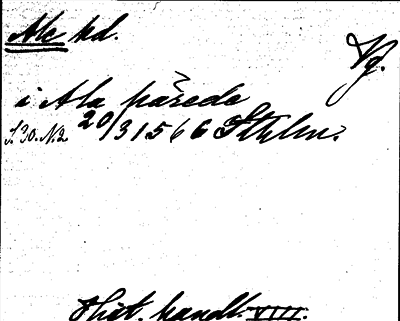 Ale hd.
Vg.
i Ala härede
S. 30. N. 2 20/3 1566 Sthlm.
Hist. handl. VIII.